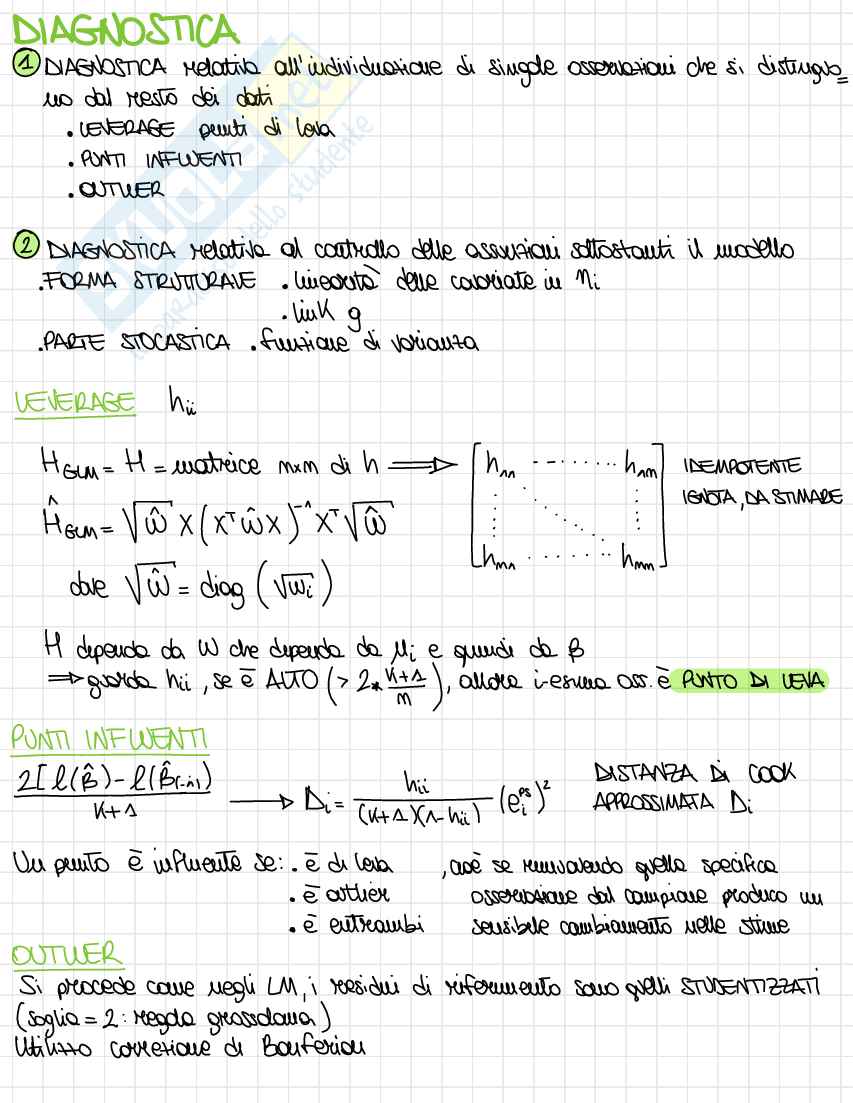 DIAGNOSTICA
1 DIAGNOSTICA relativa all'individuazione di singole osservazioni che si distinguo=
no dal resto dei dati
. LEVERAGE punti di leva
. PUNTI INFLUENTI
. OUTLIER
2 DIAGNOSTICA relativa al controllo delle assunzioni sottostanti il modello
. FORMA STRUTTURALE . linearità delle covariate in ηi
. link g
. PARTE STOCASTICA . funzione di varianza
LEVERAGE hii
HGLM = H = matrice n×n di h ⟹ [h11 ... h1n
hn1 ... hnn] IDEMPOTENTE
IGNOTA, DA STIMARE
ĤGLM = √ŵ X (Xᵀ ŵ X)⁻¹ Xᵀ √ŵ
dove √ŵ = diag (√wi)
H dipende da W che dipende da μi e quindi da β
⟹ guarda hii, se è ALTO (> 2* K+1/n), allora i-esima oss. è PUNTO DI LEVA
PUNTI INFLUENTI
2[ℓ(β̂) - ℓ(β̂(-i))] / K+1 ⟶ Di = hii / (K+1)(1-hii) (eiᵖˢ)² DISTANZA DI COOK
APPROSSIMATA Di
Un punto è influente se: . è di leva , cioè se rimuovendo quella specifica
. è outlier osservazione dal campione produco un
. è entrambi sensibile cambiamento nelle stime
OUTLIER
Si procede come negli LM, i residui di riferimento sono quelli STUDENTIZZATI
(soglia = 2: regola grossolana)
Utilizzo correzione di Bonferroni